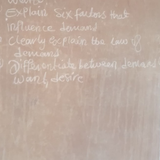 Explain Six factors that
influence demand
Clearly explain the law of
demand
Differentiate between demand
want, desire